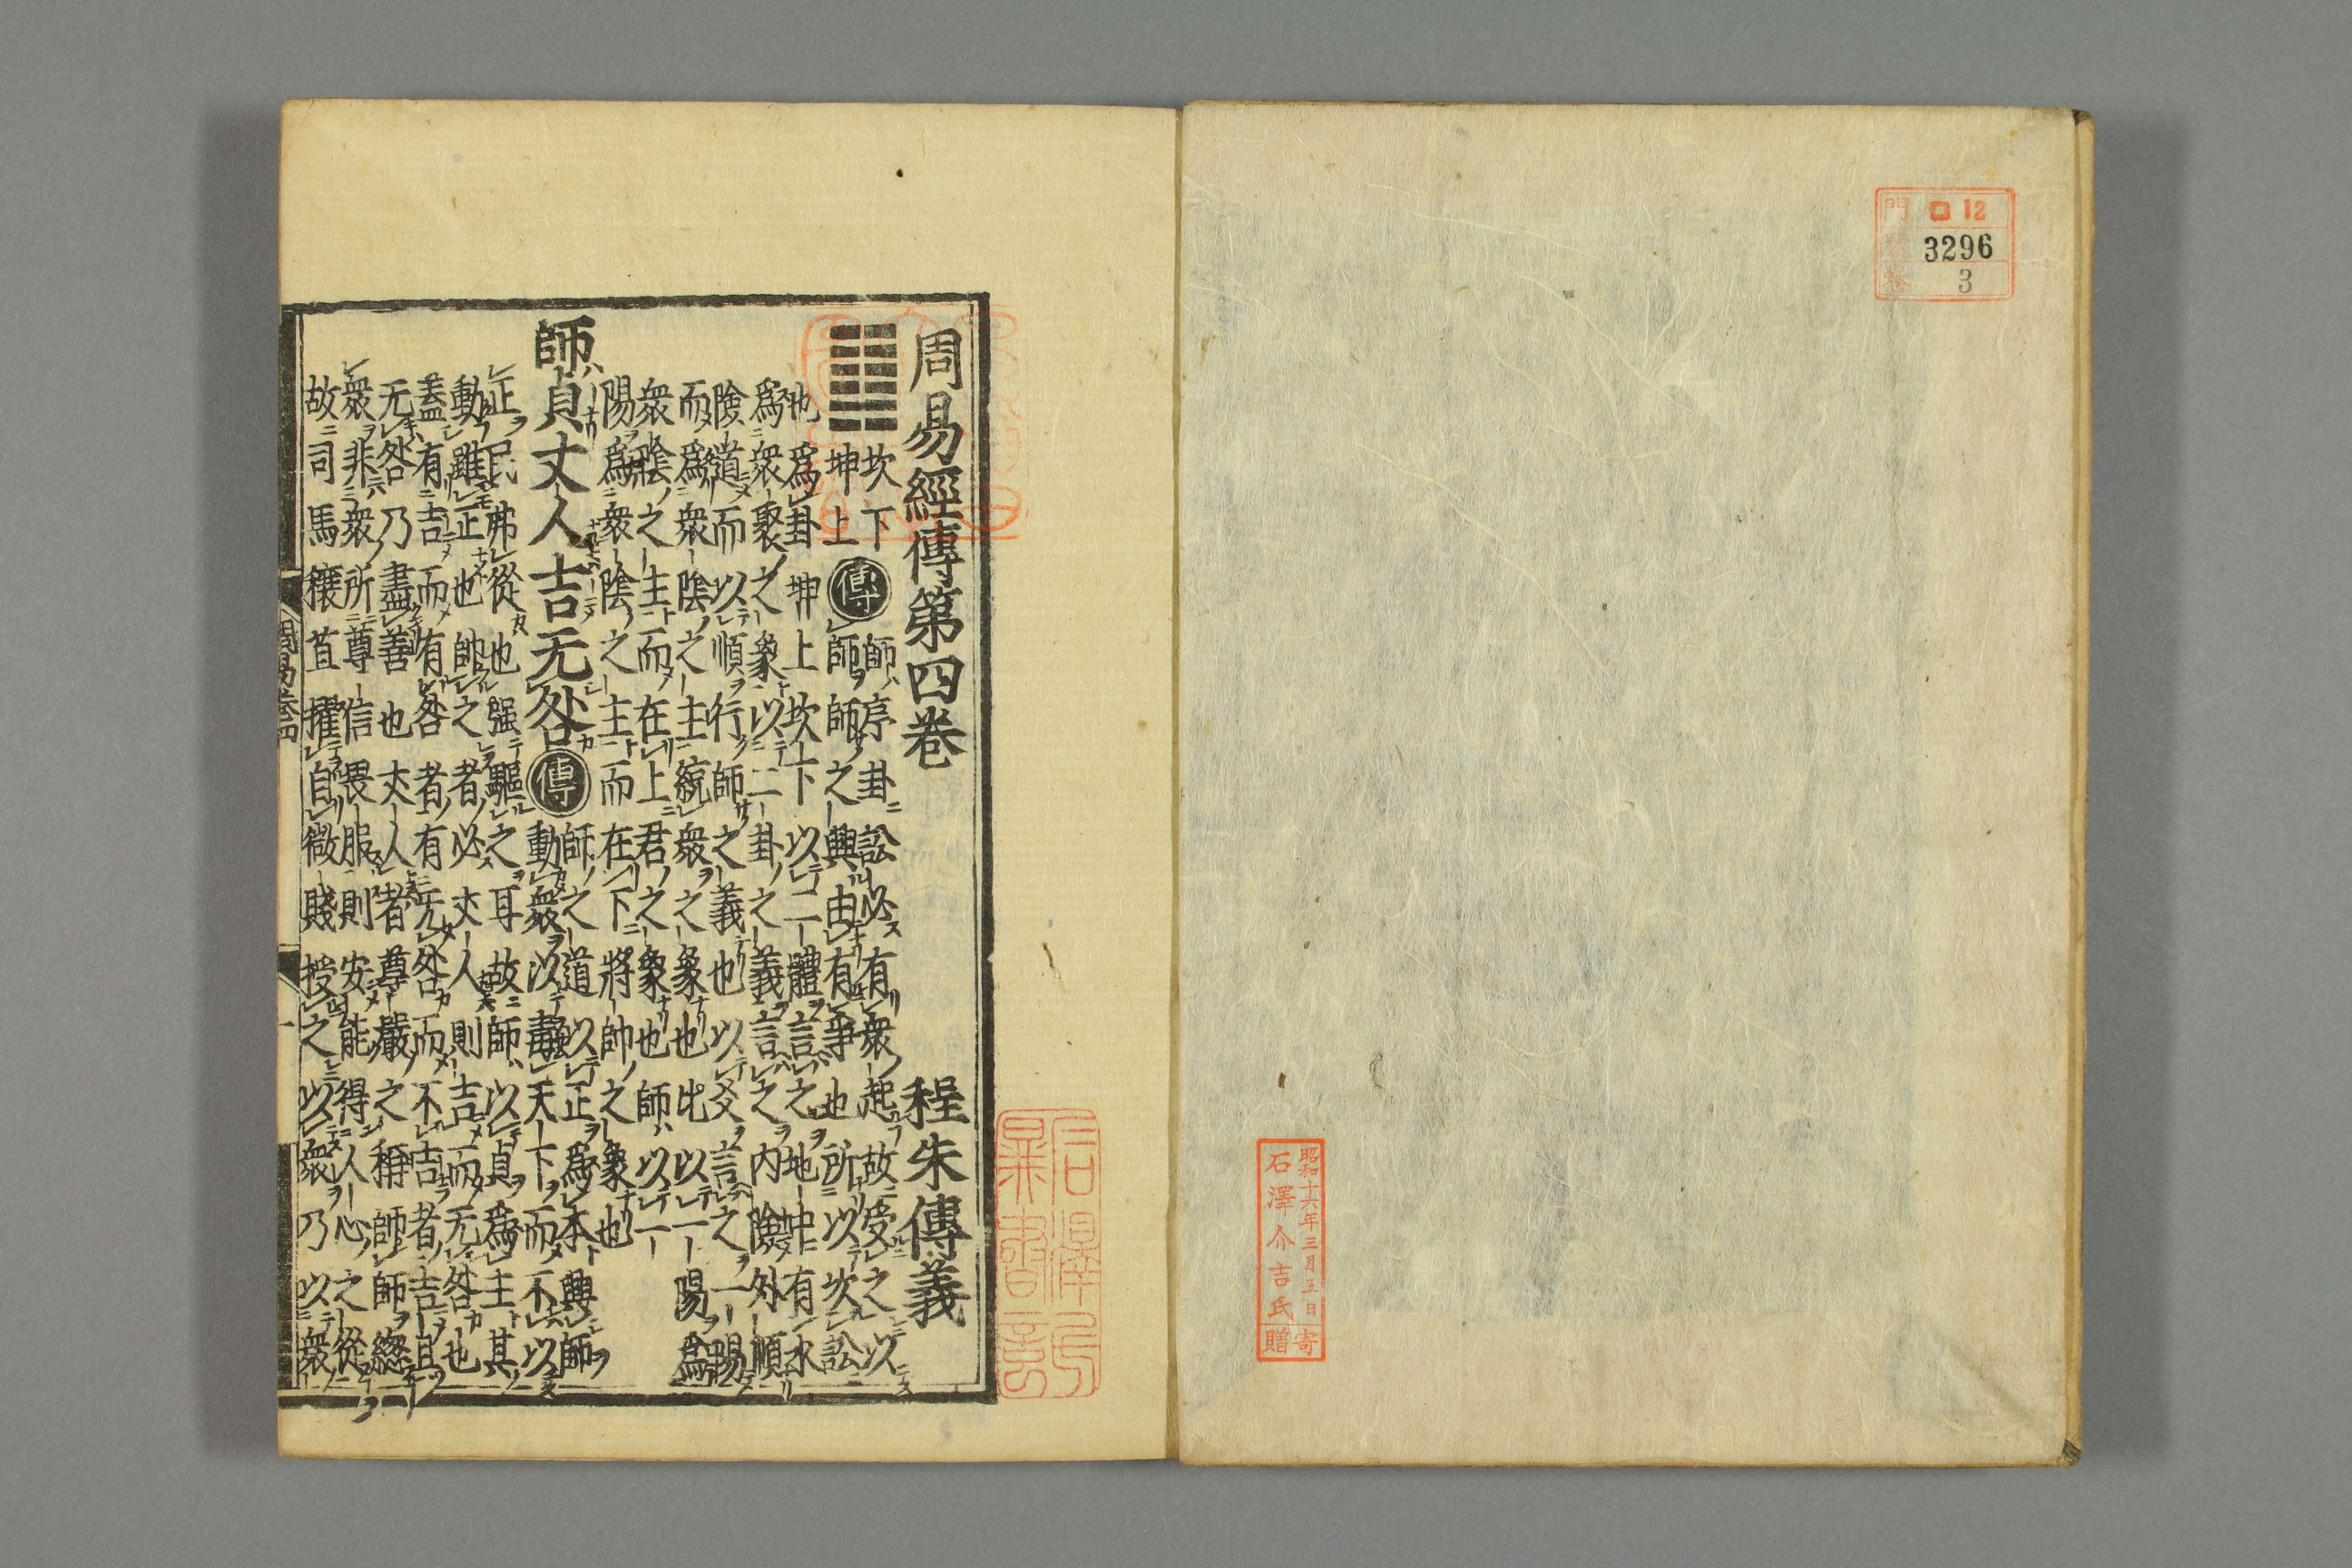 門 ロ 12
3296
卷 3
昭和十六年三月五日寄
石澤介吉氏贈
周易經傳第四卷 程朱傳義
坎下 傳 師序卦訟必有衆起故受之以
坤上 師師之興由有爭也所以次訟
也爲卦坤上坎下以二體言之地中有水
爲衆聚之象以二卦之義言之内險外順
險道而以順行師之義也以爻言之一陽
而爲衆陰之主統衆之象也比以一陽爲
衆陰之主而在上君之象也師以一
陽爲衆陰之主而在下將帥之象也
師貞丈人吉无咎 傳 師之道以正爲本興師
動衆以毒天下而不以
正民弗從也强驅之耳故師以貞爲主其
動雖正也帥之者必丈人則吉而无咎也
蓋有吉而有咎者有无咎而不吉者吉且
无咎乃盡善也丈人者尊嚴之稱帥師緫
衆非衆所尊信畏服則安能得人心之從
故司馬穰苴擢自微賤授之以衆乃以衆
周易卷四 一